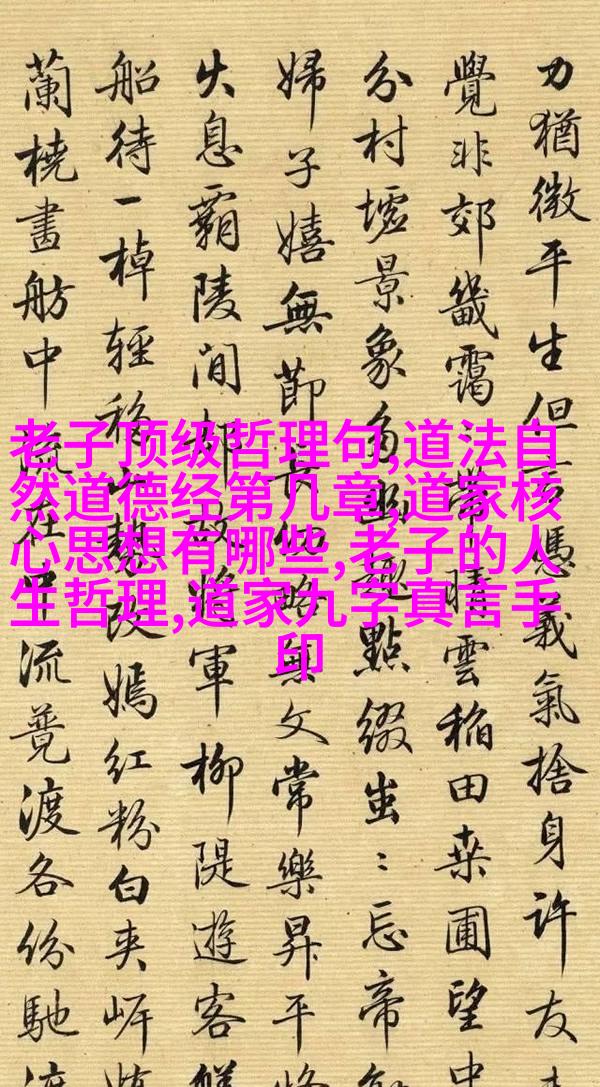 老子顶级哲理句,道法自
然道德经第几章,道家核
心思想有哪些,老子的人
生哲理,道家九字真言手
印
力猶微平生但憑義氣捨身許友
覺非郊畿靄帶晴雲稲田桑圃望中
分村墟景象幽趣點綴蚩〻忘帝
婦子嬉無節長無文常樂昇平
失息霸陵間故將軍柳隄遊客
船待一棹輕移勢改嫣紅粉白夾岸
蘭橈畫舫中流覽渡各份馳